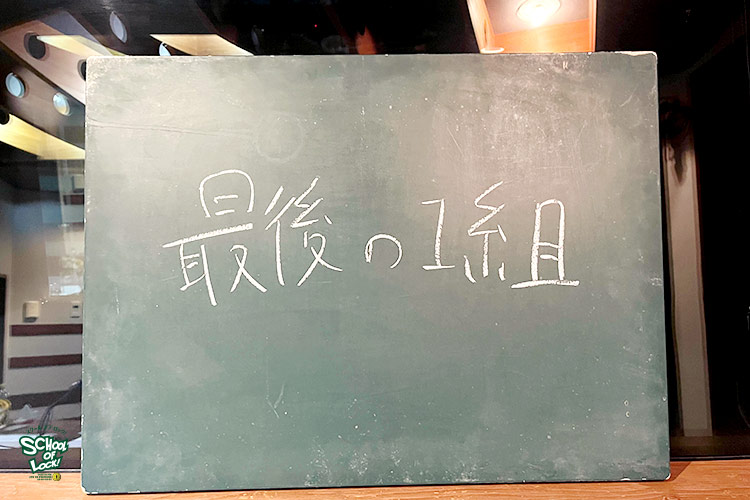 最後の1組
SCHOOL
OF
LOCK!